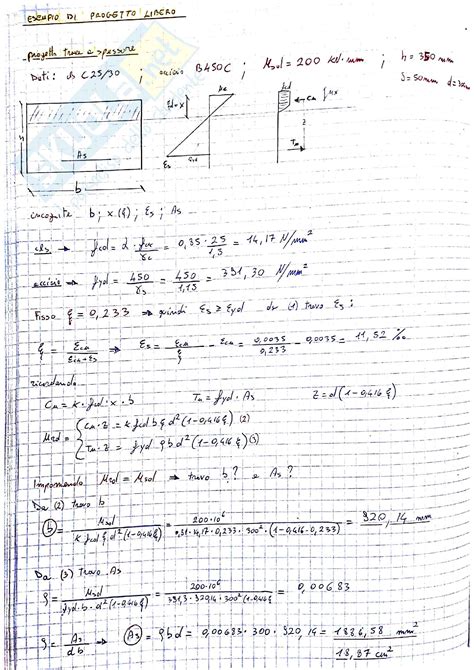 ESEMPIO DI PROGETTO LIBERO
progetto trave a spessore
Dati: cls C25/30 ; acciaio B450C ; Msd = 200 kN·mm ; h = 350 mm
δ = 50 mm d = 300
h
As
b
εs
z
incognite b ; x (ξ) ; εs ; As
cls → fcd = α · fck / γc = 0,85 · 25 / 1,5 = 14,17 N/mm²
acciaio → fyd = 450 / γs = 450 / 1,15 = 391,30 N/mm²
Fisso ξ = 0,233 → quindi εs ≥ εyd da (1) trovo εs :
ξ = εcu / εcu+εs ⇒ εs = εcu / ξ - εcu = 0,0035 / 0,233 - 0,0035 = 11,52 ‰
ricordando
Cu = k · fcd · x · b Tu = fyd · As z = d(1-0,416ξ)
Mrd = { Cu · z = k fcd b ξ d² (1-0,416ξ) (2)
Tu · z = fyd · ρ b d² (1-0,416ξ) (3)
Imponendo Mrd = Msd ⇒ trovo b? e As?
Da (2) trovo b
b = Msd / k fcd ξ d² (1-0,416ξ) = 200·10⁶ / 0,81·14,17·0,233·300²·(1-0,416·0,233) = 920,14 mm
Da (3) trovo As
ρ = Msd / fyd · b · d² (1-0,416ξ) = 200·10⁶ / 391,3·920,14·300² (1-0,416ξ) = 0,00683
ρ = As / db → As = ρ b d = 0,00683 · 300 · 920,14 = 1886,58 mm²
18,87 cm²